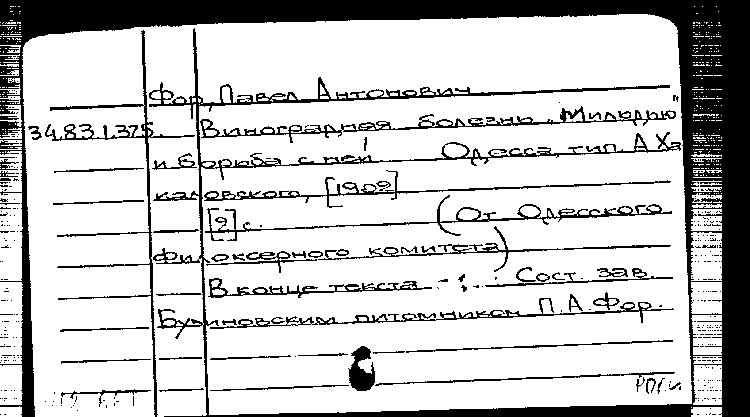 Фор, Павел Антонович
34.83.1.375. Виноградная болезнь „Мильдью"
и борьба с ней! Одесса, тип. А. Ха
каловского, [1902]
[2] с. (От Одесского
Филоксерного комитета)
В конце текста : Сост. зав.
питомником П. А. Фор.